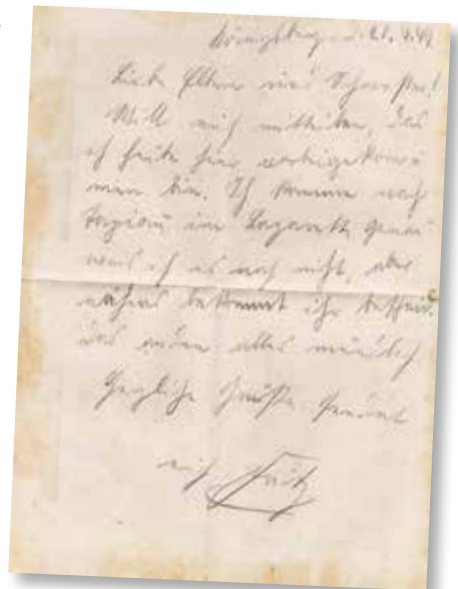 Königsberg, d. 21. 9. 44
Liebe Eltern und Schwester!
Will euch mitteilen, das
ich heute hier vorbeigekom=
men bin. Ich komme nach
Tapiau ins Lazarett genau
weis ich es noch nicht, aber
näheres bekommt ihr bescheid.
das andere alles mündlich
Herzliche Grüße sendet
euch Fritz